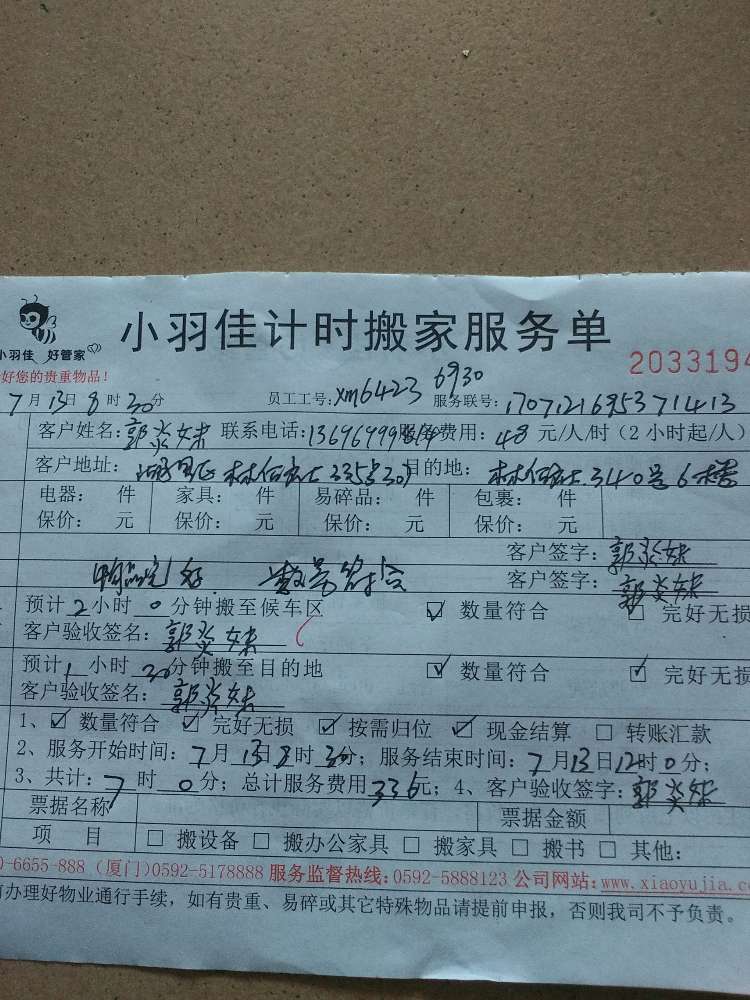 小羽佳计时搬家服务单
小羽佳 好管家
2033194
好您的贵重物品!
7月13日8时30分 员工工号:xm6423 6930 服务联号:170712169537 1413
客户姓名:郭炎妹 联系电话:13696999 服务费用:48元/人/时(2小时起/人)
客户地址: 目的地: 340号6楼
电器: 件 家具: 件 易碎品: 件 包裹: 件
保价: 元 保价: 元 保价: 元 保价: 元
客户签字:郭炎妹
好. 数量符合 客户签字:郭炎妹
预计2小时0分钟搬至候车区 ☑ 数量符合 ☐ 完好无损
客户验收签名:郭炎妹
预计1小时30分钟搬至目的地 ☑ 数量符合 ☑ 完好无损
客户验收签名:郭炎妹
1、☑ 数量符合 ☑ 完好无损 ☑ 按需归位 ☑ 现金结算 ☐ 转账汇款
2、服务开始时间:7月13日8时30分;服务结束时间:7月13日12时0分;
3、共计:7时0分;总计服务费用336元;4、客户验收签字:郭炎妹
票据名称 票据金额
项 目 ☐ 搬设备 ☐ 搬办公家具 ☐ 搬家具 ☐ 搬书 ☐ 其他:
0-6655-888(厦门)0592-5178888 服务监督热线:0592-5888123 公司网站:www.xiaoyujia.co
前办理好物业通行手续,如有贵重、易碎或其它特殊物品请提前申报,否则我司不予负责。